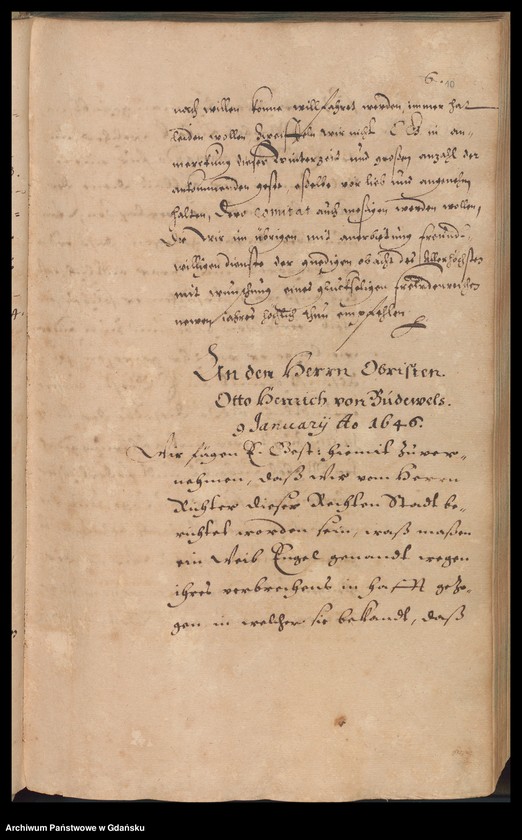 6. 10
nach willen könne willfahret werden, immer hat
leiden wollen Zweiffeln wir nicht E Ed in an-
merckung dieser Winterzeit und grossen anzahl der
ankommenden geste, vor lieb und angenehm
halten, Dero Comitat auch messigen werden wollen,
Die Wir im übrigen mit anerbietung freund-
willigen dienste der gnedigen obacht des Allerhöchsten
mit wunschung eines glückseligen frewdenreichen
newen Jahres thun empfehlen
An dem Herrn Obristen.
Otto Henrich von Büdewels.
9 January Ao 1646.
Wir fügen E. Gest: hiemit zu ver-
nehmen, daß Wir vom Herrn
Richter dieser Rechten Stadt be-
richtet worden sein, waß maßen
ein Weib Engel genandt wegen
ihres verbrechens in hafft gezo-
gen in welcher sie bekandt, daß
Archiwum Państwowe w Gdańsku